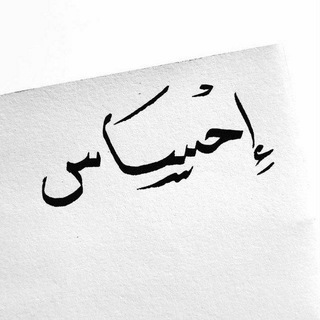 إحْساس